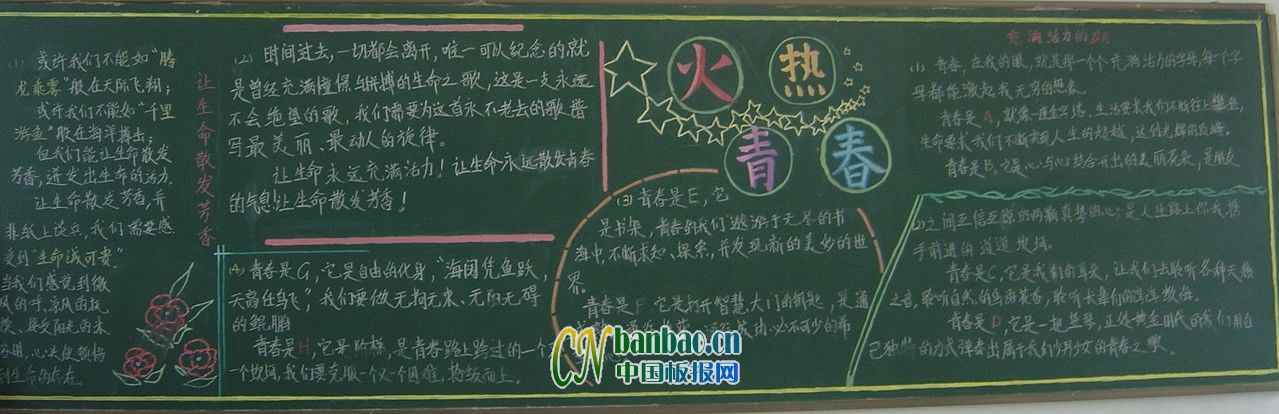 火热
青春
让生命散发芳香
(1) 或许我们不能如“腾
龙乘雾”般在天际飞翔；
或许我们不能如“千里
游鱼”般在海洋搏击；
但我们能让生命散发
芳香，迸发出生命的活力.
让生命散发芳香，并
非纸上谈兵，我们需要感
受到“生命诚可贵”.
当我们感觉到微
(2) 时间过去，一切都会离开，唯一可以纪念的就
是曾经充满憧憬与拼搏的生命之歌，这是一支永远
不会绝望的歌，我们需要为这首永不老去的歌谱
写最美丽、最动人的旋律。
让生命永远充满活力！让生命永远散发青春
的气息！让生命散发芳香！
充满活力的
(1) 青春，在我的眼，就是那一个个充满活力的字母，每个字
母都能激起我无穷的想象。
青春是A，就像一座金字塔，生活要求我们不断往上攀登，
生命要求我们不断实现人生的超越，达到光辉的顶峰。
青春是B，它是心与心结合开出的美丽花朵，是朋友
(2) 之间互信互谅的两颗真挚的心；是人生路上你我携
手前进的道道
青春是C，它是我们的耳朵，让我们去聆听各种天籁
之音，聆听自然的
青春是D，它是一把竖琴，正处黄金时代的我们用自
己独特的方式弹奏出属于我们少男少女的青春之歌。
(3) 青春是E，它
是书架，青春的我们遨游于无尽的书
海中，不断求知、探索，并发现新的美妙的世
界。
青春是F 它是打开智慧大门的钥匙，是通
成功必不可少的
(4) 青春是G，它是自由的化身，“海阔凭鱼跃，
天高任鸟飞”，我们要做无拘无束、无阻无碍
的鲲鹏
青春是H，它是阶梯，是青春路上跨过的一个
个坎坷，我们要克服一个又一个困难，拾级而上。
CN banbao.cn
中国板报网